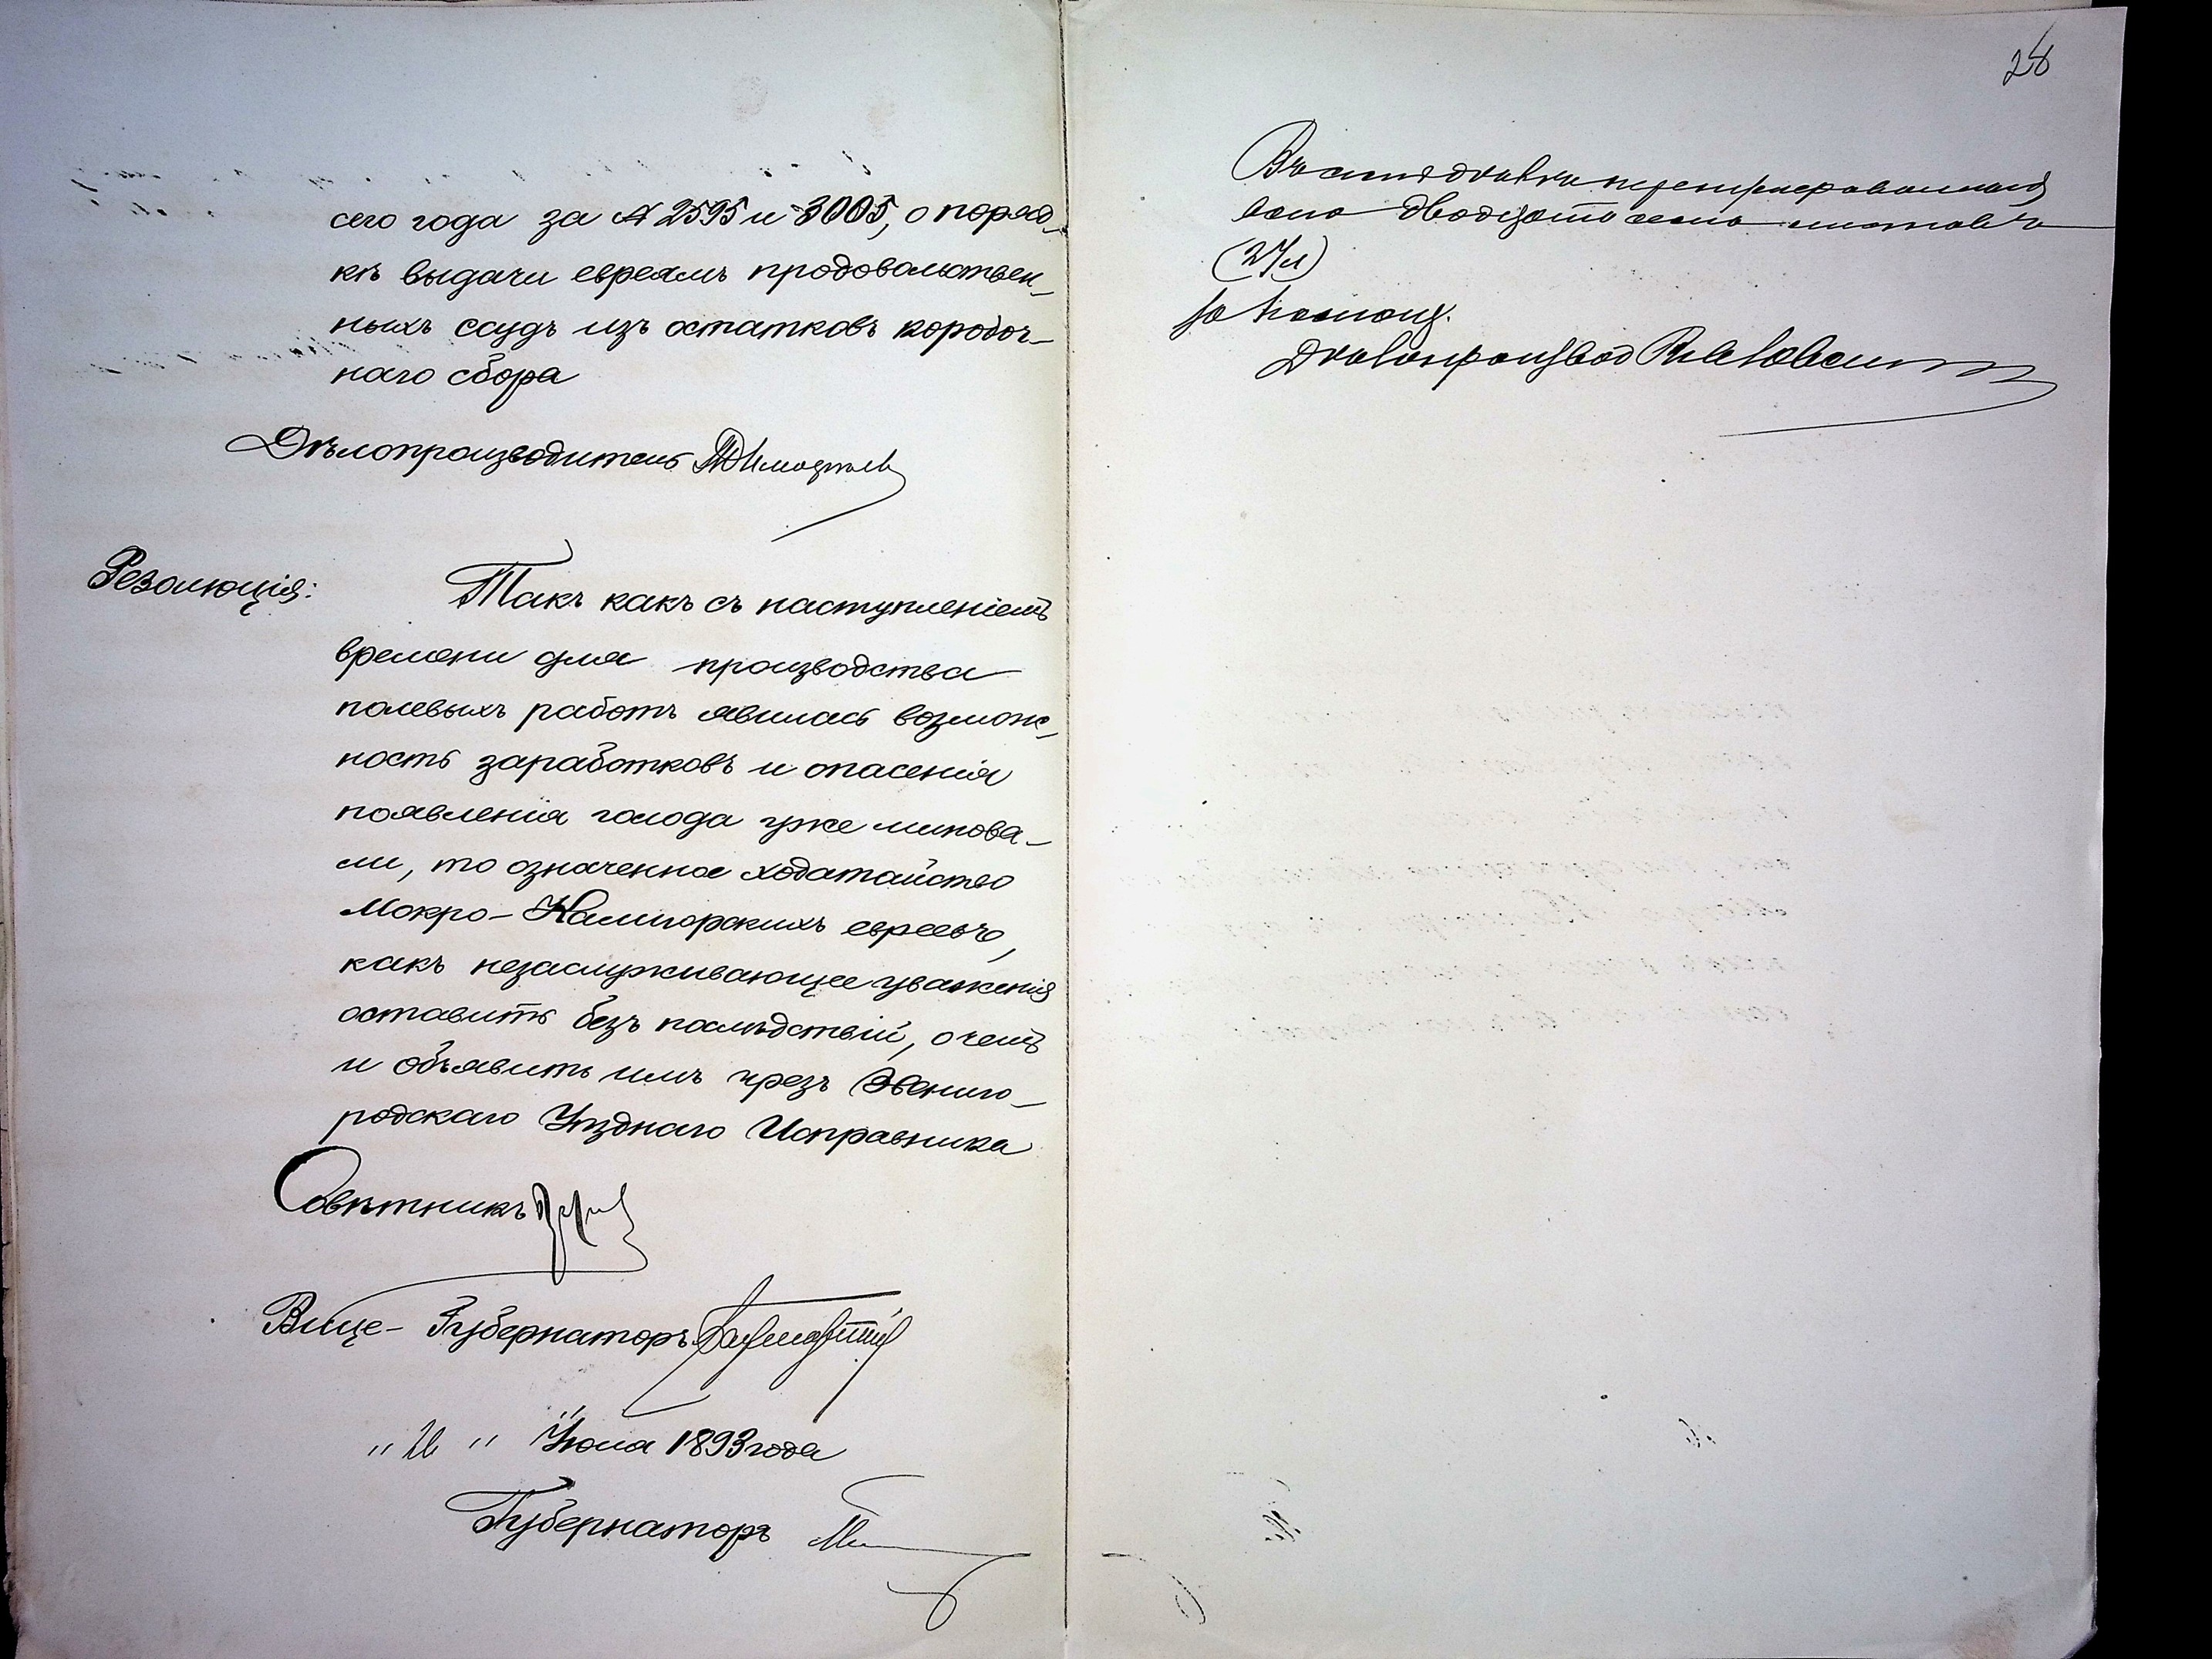 сего года за № 2595 и 3005, о поряд-
кѣ выдачи евреямъ продовольствен-
ныхъ ссудъ изъ остатковъ коробоч-
наго сбора
Дѣлопроизводитель
Резолюція:
Такъ какъ съ наступленіемъ
времени для производства
полевыхъ работъ явилась возмож-
ность заработковъ и опасенія
появленія голода уже минова-
ли, то означенное ходатайство
Мокро-Калигорскихъ евреевъ,
какъ незаслуживающее уваженія
оставить безъ послѣдствій, о чемъ
и объявить имъ чрезъ Звениго-
родскаго Уѣзднаго Исправника
Совѣтникъ
Вице-Губернаторъ
" " Іюня 1893 года
Губернаторъ
28
Въ семъ дѣлѣ перенумерованныхъ
всего двадцать семь листовъ
(27 л)
За помощ.
Дѣлопроизвод